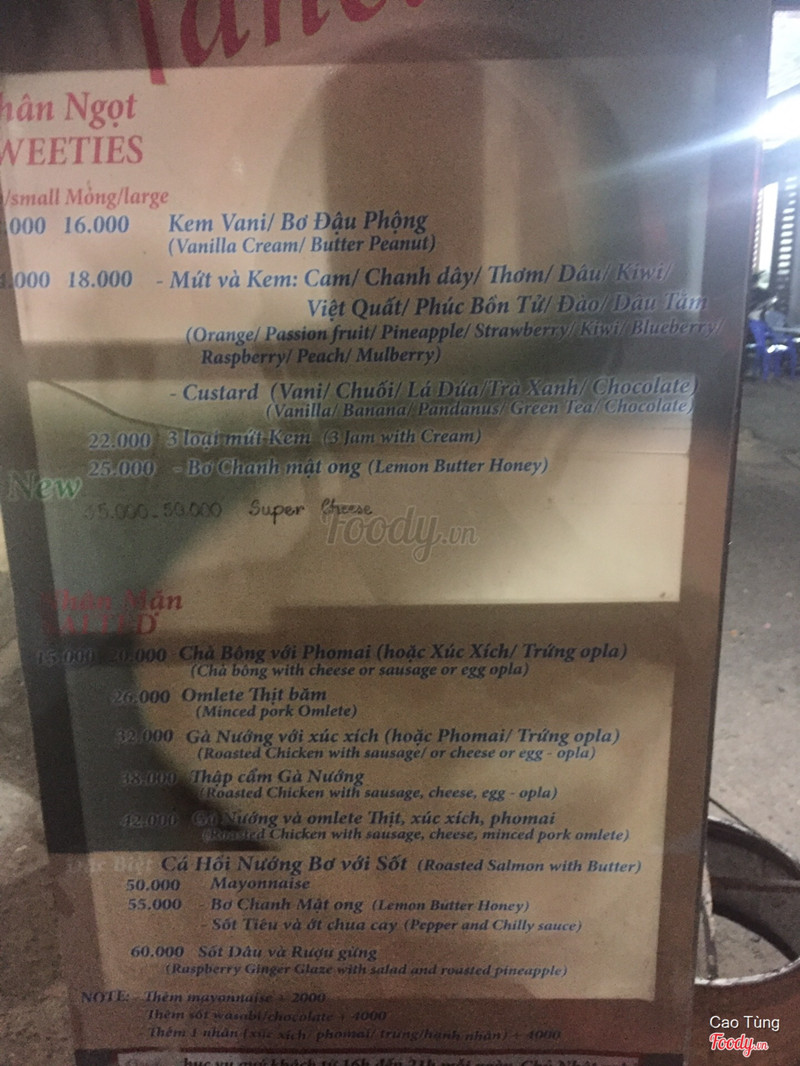 hân Ngọt
WEETIES
/small Mỏng/large
.000 16.000 Kem Vani/ Bơ Đậu Phộng
(Vanilla Cream/ Butter Peanut)
.000 18.000 - Mứt và Kem: Cam/ Chanh dây/ Thơm/ Dâu/ Kiwi/
Việt Quất/ Phúc Bồn Tử/ Đào/ Dâu Tằm
(Orange/ Passion fruit/ Pineapple/ Strawberry/ Kiwi/ Blueberry/
Raspberry/ Peach/ Mulberry)
- Custard (Vani/ Chuối/ Lá Dứa/Trà Xanh/ Chocolate)
(Vanilla/ Banana/ Pandanus/ Green Tea/ Chocolate)
22.000 3 loại mứt-Kem (3 Jam with Cream)
25.000 - Bơ Chanh mật ong (Lemon Butter Honey)
New
35.000-50.000 Super Cheese
Foody.vn
Nhân Mặn
SALTED
15.000 20.000 Chà Bông với Phomai (hoặc Xúc Xích/ Trứng opla)
(Chà bông with cheese or sausage or egg opla)
26.000 Omlete Thịt băm
(Minced pork Omlete)
32.000 Gà Nướng với xúc xích (hoặc Phomai/ Trứng opla)
(Roasted Chicken with sausage/ or cheese or egg - opla)
38.000 Thập cẩm Gà Nướng
(Roasted Chicken with sausage, cheese, egg - opla)
42.000 Gà Nướng và omlete Thịt, xúc xích, phomai
(Roasted Chicken with sausage, cheese, minced pork omlete)
Đặc Biệt Cá Hồi Nướng Bơ với Sốt (Roasted Salmon with Butter)
50.000 - Mayonnaise
55.000 - Bơ Chanh Mật ong (Lemon Butter Honey)
- Sốt Tiêu và ớt chua cay (Pepper and Chilly sauce)
60.000 Sốt Dâu và Rượu gừng
(Raspberry Ginger Glaze with salad and roasted pineapple)
NOTE: - Thêm mayonnaise + 2000
Thêm sốt wasabi/chocolate + 4000
Thêm 1 nhân (xúc xích/ phomai/ trứng/hạnh nhân) + 4000
hục vụ quý khách từ 16h đến 21h mỗi ngày, Chủ Nhật
Cao Tùng
Foody.vn